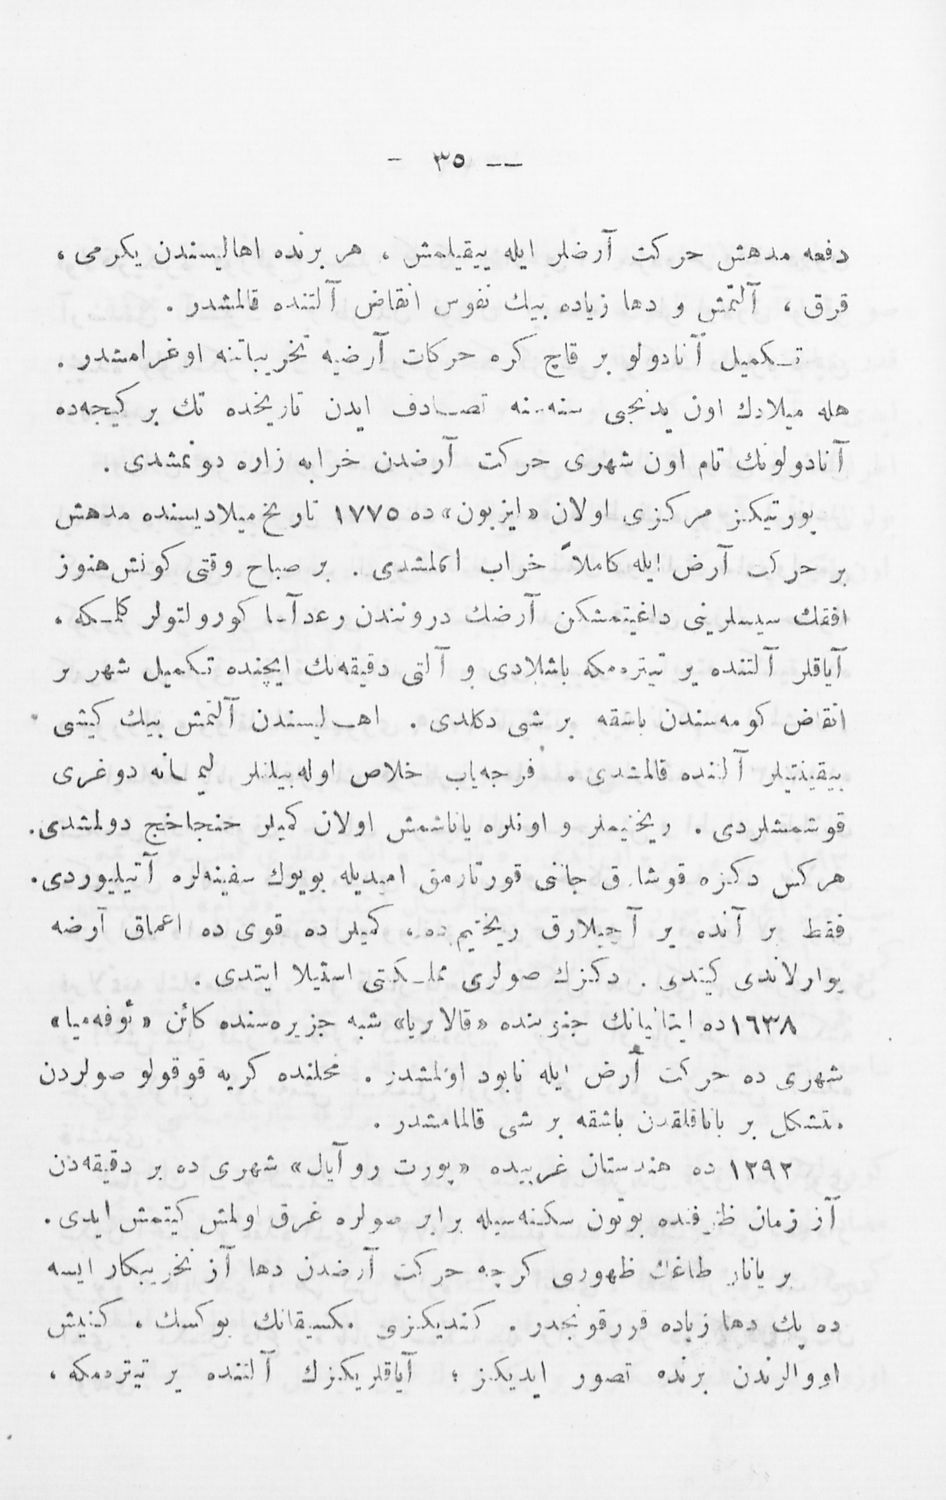 — ٣٥ -
دفعه مدهش حركت آرضلر ايله ييقيلمش ، هر برنده اهاليسندن يكرمى ،
قرق ، آلتمش و دها زياده بيك نفوس انقاض آلتنده قالمشدر .
تكميل آنادولو بر قاچ كره حركات آرضيه تخريباتنه اوغرامشدر .
هله ميلادك اون يدنجى سنه‌سنه تصادف ايدن تاريخده تك بر كيجه‌ده
آنادولونك تام اون شهرى حركت آرضدن خرابه زاره دونمشدى .
پورتيكز مركزى اولان «ليزبون» ده ١٧٧٥ تاريخ ميلاديسنده مدهش
بر حركت آرض ايله كاملاً خراب اولمشدى . بر صباح وقتى كونش هنوز
افقك سيسلرينى داغيتمشكن آرضك دروندن رعدآسا كورولتولر كلمكه ،
آياقلر آلتنده ير تيتره‌مكه باشلادى و آلتى دقيقه‌نك ايچنده تكميل شهر بر
انقاض كومه‌سندن باشقه بر شى دكلدى . اهاليسندن آلتمش بيك كيشى
ييقينتيلر آلتنده قالمشدى . فرجه‌ياب خلاص اوله‌بيلنلر ليمانه دوغرى
قوشمشلردى . ريختيملر و اونلره ياناشمش اولان كميلر خنجاخنج دولمشدى.
هركس دكزه قوشارق جاننى قورتارمق اميديله بويوك سفينه‌لره آتيليوردى.
فقط بر آنده ير آچيلارق ريختيم ده ، كميلر ده قوى ده اعماق آرضه
يوارلاندى كيتدى . دكزك صولرى مملكتى استيلا ايتدى .
١٦٣٨ ده ايتاليانك جنوبنده «قالابريا» شبه جزيره‌سنده كائن «ئوفه‌ميا»
شهرى ده حركت آرض ايله نابود اولمشدر . محلنده كريه قوقولو صولردن
متشكل بر باتاقلقدن باشقه بر شى قالمامشدر .
١٢٩٢ ده هندستان غربيده «پورت روآيال» شهرى ده بر دقيقه‌دن
آز زمان ظرفنده بوتون سكنه‌سيله برابر صولره غرق اولمش كيتمش ايدى.
بر يانار طاغك ظهورى كرچه حركت آرضدن دها آز تخريبكار ايسه
ده پك دها زياده قورقونجدر . كنديكزى مكسيقانك يوكسك ، كنيش
اووالرندن برنده تصور ايديكز ؛ آياقلريكزك آلتنده ير تيتره‌مكه ،